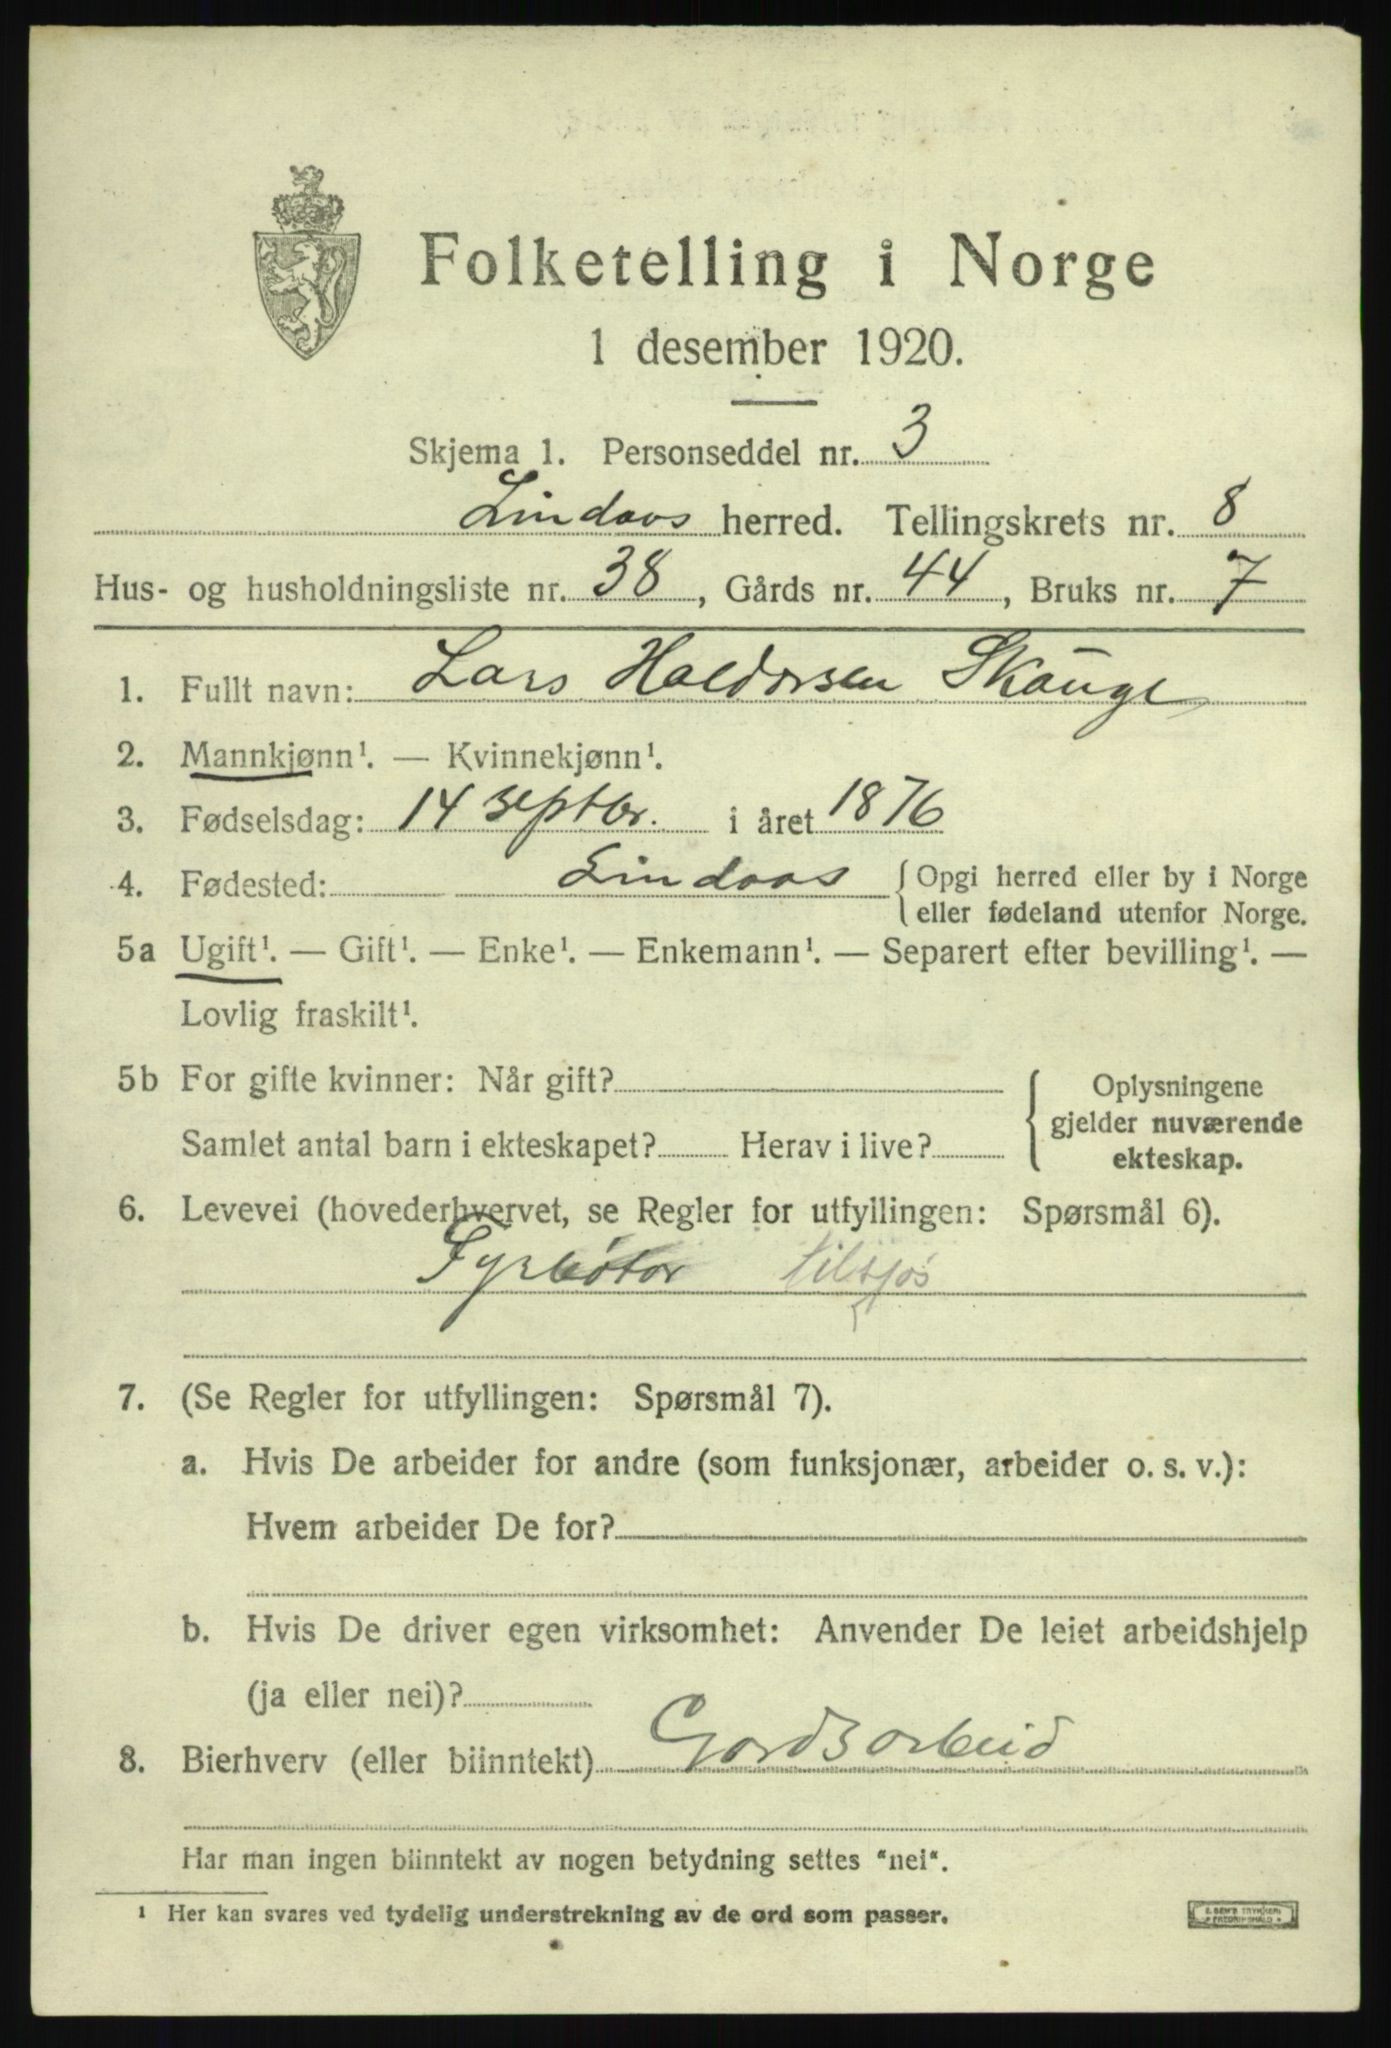 Folketelling i Norge
1 desember 1920.
Skjema 1. Personseddel nr. 3
Lindaas herred. Tellingskrets nr. 8
Hus- og husholdningsliste nr. 38, Gårds nr. 44, Bruks nr. 7
1. Fullt navn: Lars Haldorsen Skauge
2. Mannkjønn¹. — Kvinnekjønn¹.
3. Fødselsdag: 14 septbr. i året 1876
4. Fødested: Lindaas { Opgi herred eller by i Norge
eller fødeland utenfor Norge.
5a Ugift¹. — Gift¹. — Enke¹. — Enkemann¹. — Separert efter bevilling¹. —
Lovlig fraskilt¹.
5b For gifte kvinner: Når gift?
Samlet antal barn i ekteskapet? Herav i live?
Oplysningene
gjelder nuværende
ekteskap.
6. Levevei (hovederhvervet, se Regler for utfyllingen: Spørsmål 6).
Fyrbötar tilsjøs
7. (Se Regler for utfyllingen: Spørsmål 7).
a. Hvis De arbeider for andre (som funksjonær, arbeider o. s. v.):
Hvem arbeider De for?
b. Hvis De driver egen virksomhet: Anvender De leiet arbeidshjelp
(ja eller nei)?
8. Bierhverv (eller biinntekt) Gardsarbeid
Har man ingen biinntekt av nogen betydning settes "nei".
¹ Her kan svares ved tydelig understrekning av de ord som passer.